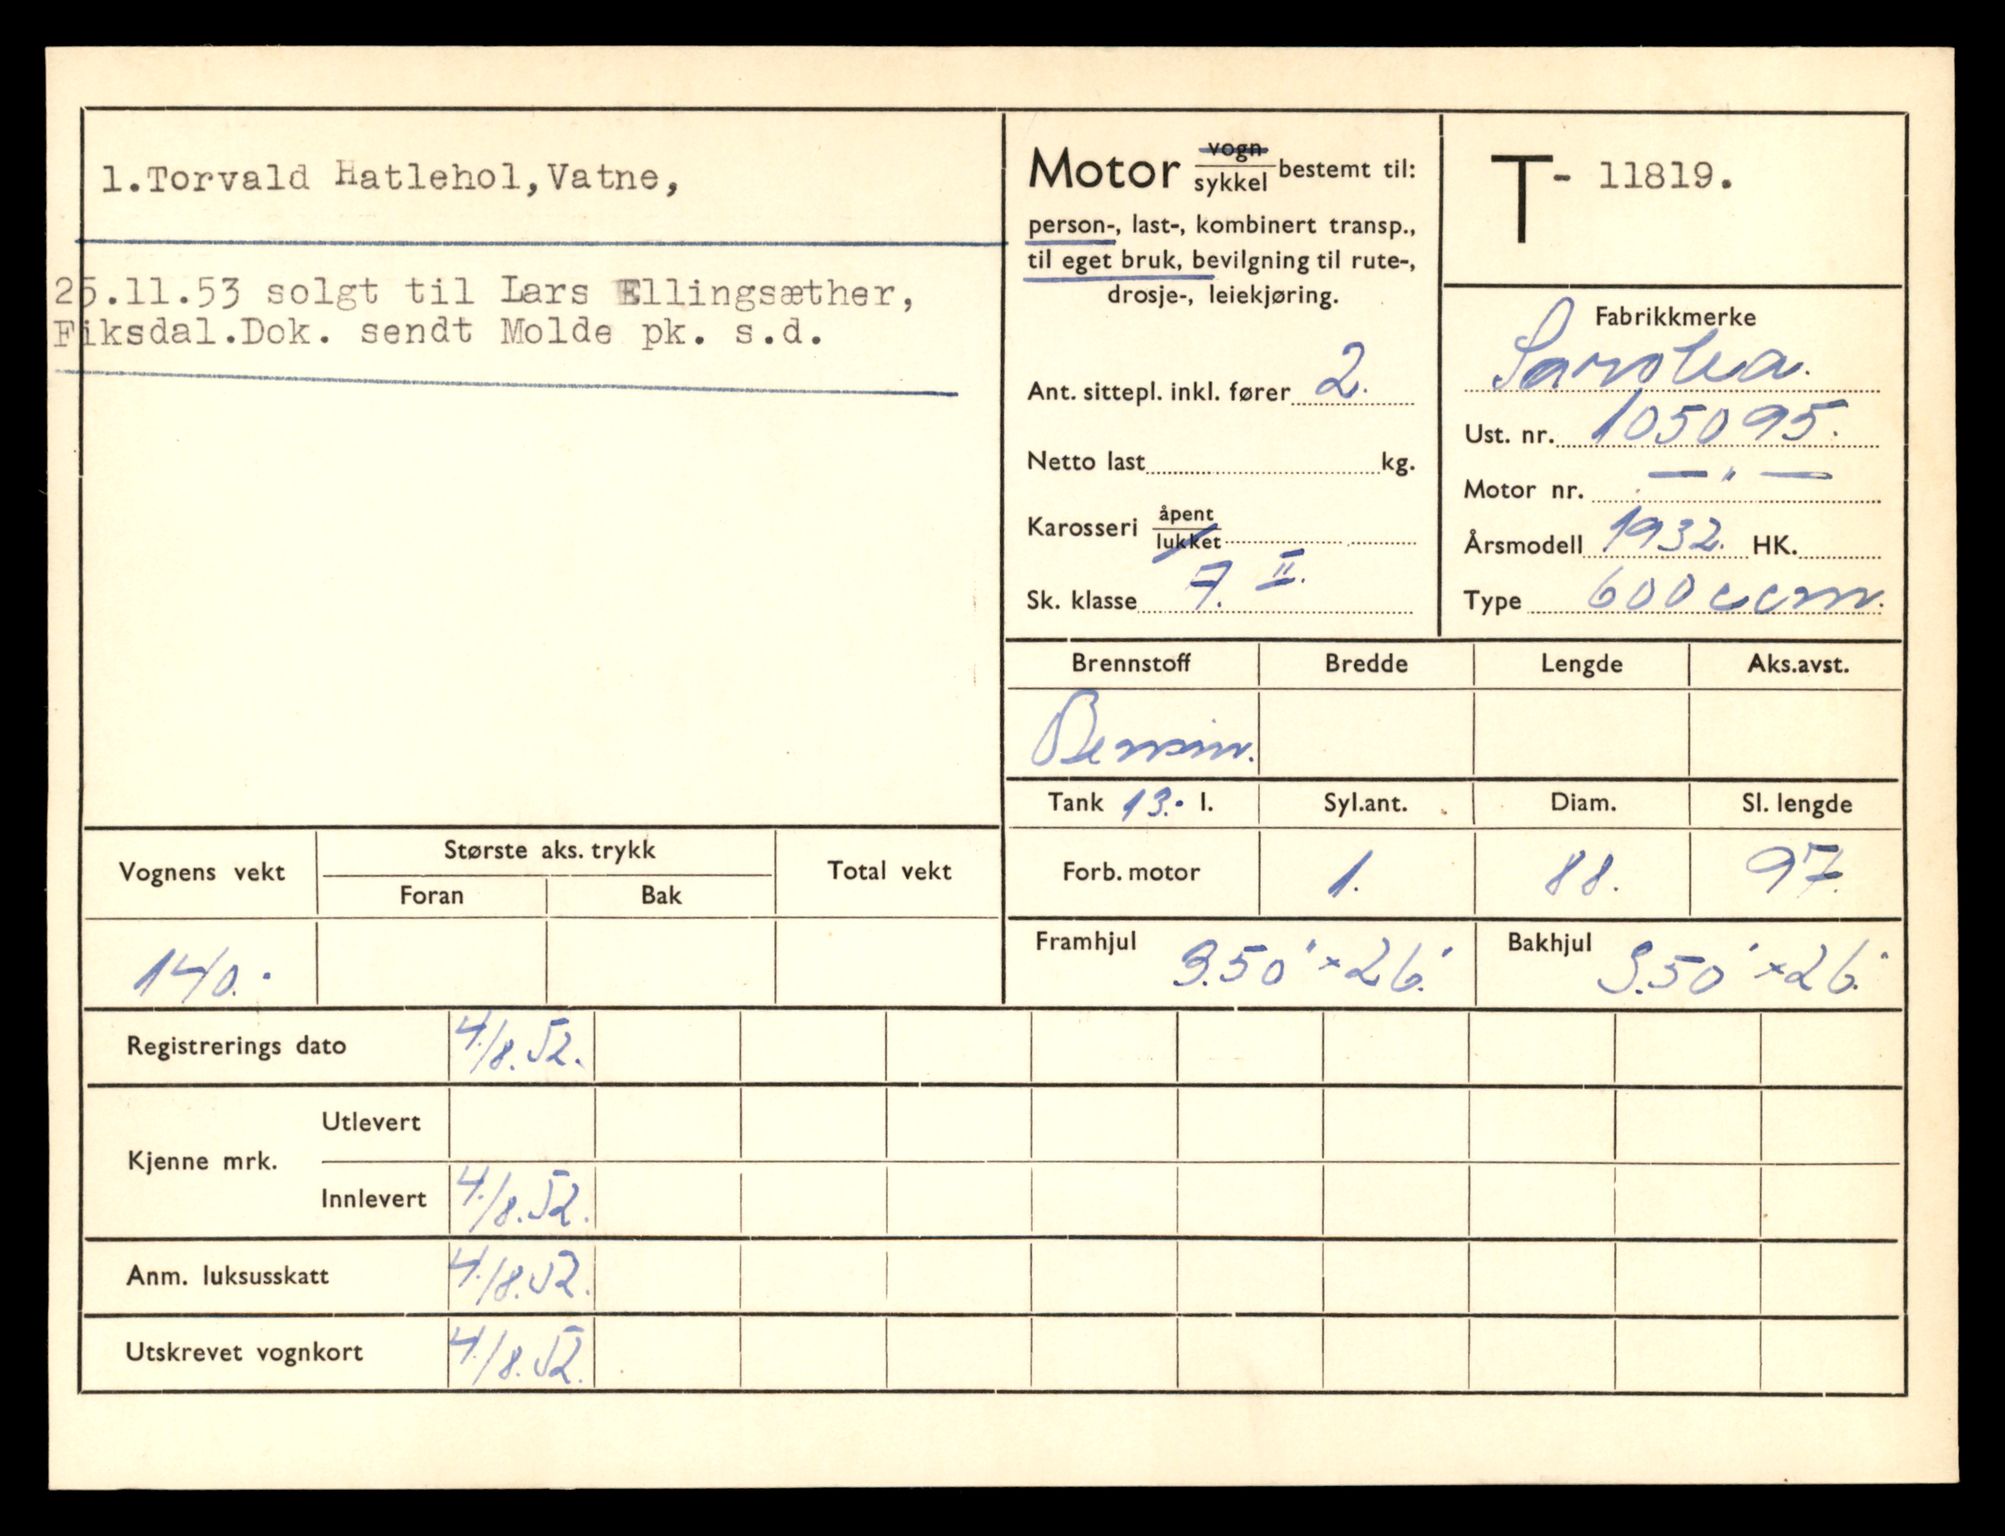 1.Torvald Hatlehol,Vatne,
25.11.53 solgt til Lars Ellingsæther,
Fiksdal.Dok. sendt Molde pk. s.d.
Motor vogn/sykkel bestemt til:
person-, last-, kombinert transp.,
til eget bruk, bevilgning til rute-,
drosje-, leiekjøring.
Ant. sittepl. inkl. fører 2.
Netto last kg.
Karosseri åpent/lukket
Sk. klasse 7. II.
T- 11819.
Fabrikkmerke
Sarolea.
Ust. nr. 105095.
Motor nr. — " —
Årsmodell 1932. HK.
Type 600 ccm.
Brennstoff Bredde Lengde Aks.avst.
Bensin.
Tank 13. l. Syl.ant. Diam. Sl. lengde
Forb. motor 1. 88. 97.
Framhjul 3.50" × 26" Bakhjul 3.50" × 26"
Vognens vekt Største aks. trykk Total vekt
Foran Bak
140.
Registrerings dato 4./8.52.
Kjenne mrk. Utlevert
Innlevert 4./8.52.
Anm. luksusskatt 4./8.52.
Utskrevet vognkort 4./8.52.